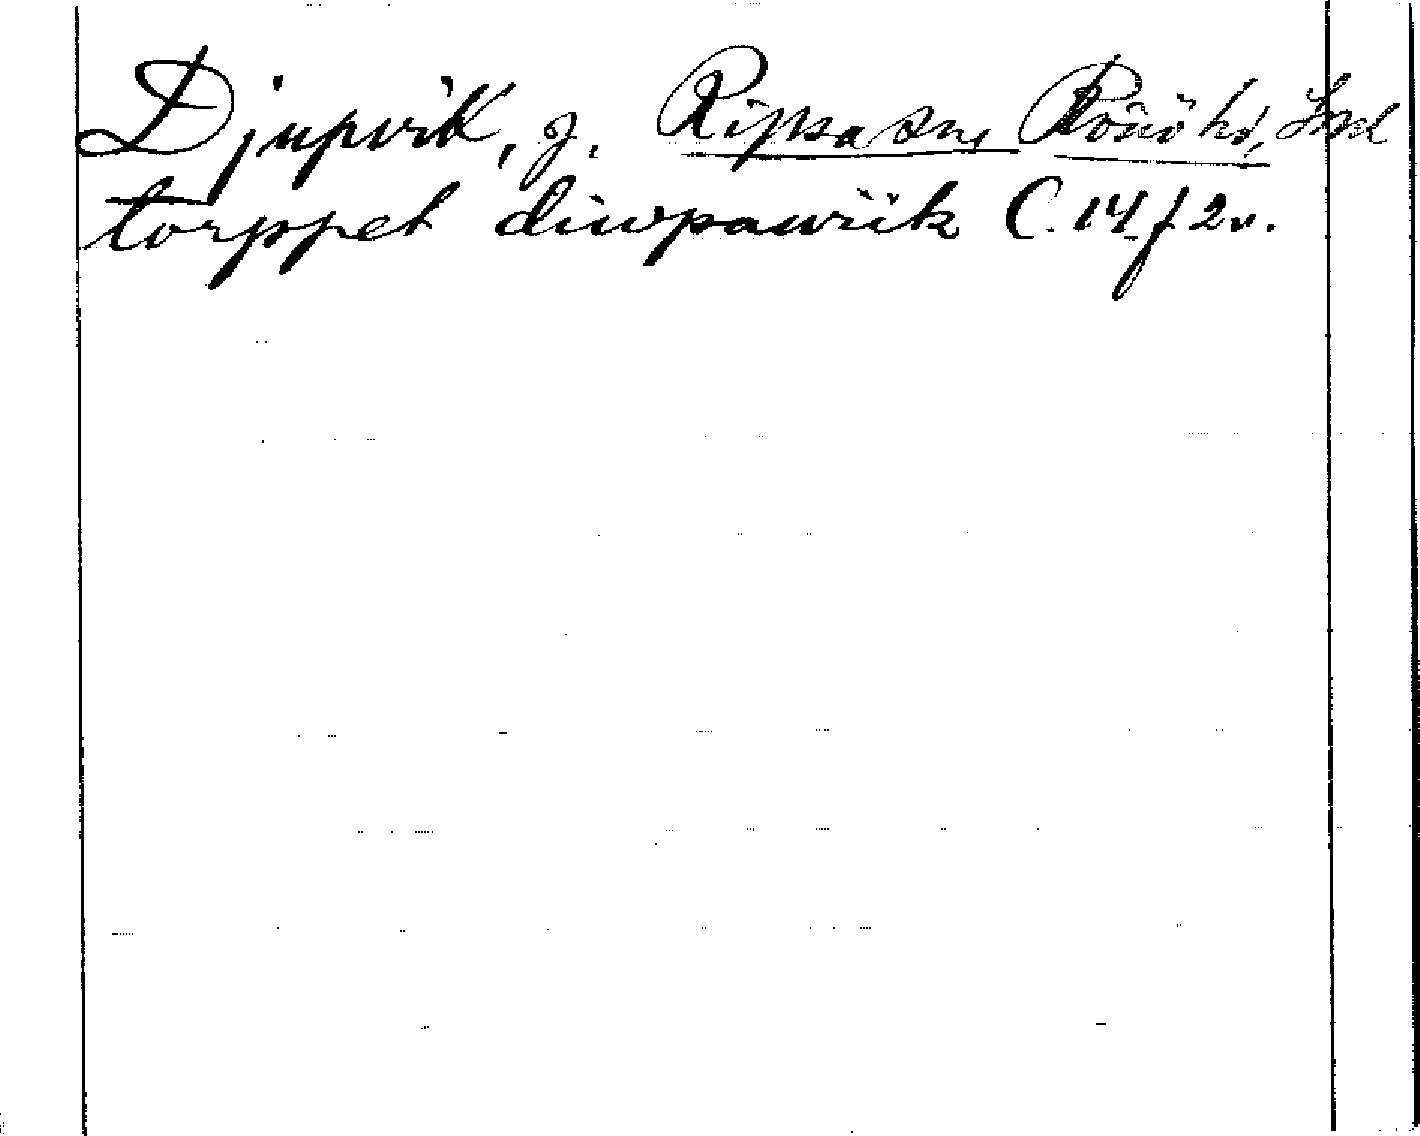 Djupvik, g. Ripsa sn, Rönö hd, Srml
torppet diwpawiik C. 14 f 2v.